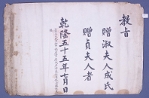 敎旨
贈淑夫人成氏
贈貞夫人者
乾隆五十五年 月日